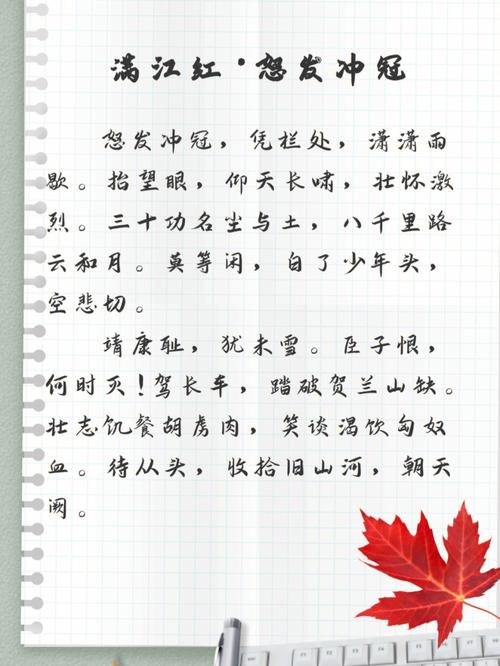 满江红·怒发冲冠
怒发冲冠，凭栏处，潇潇雨
歇。抬望眼，仰天长啸，壮怀激
烈。三十功名尘与土，八千里路
云和月。莫等闲，白了少年头，
空悲切。
靖康耻，犹未雪。臣子恨，
何时灭！驾长车，踏破贺兰山缺。
壮志饥餐胡虏肉，笑谈渴饮匈奴
血。待从头，收拾旧山河，朝天
阙。